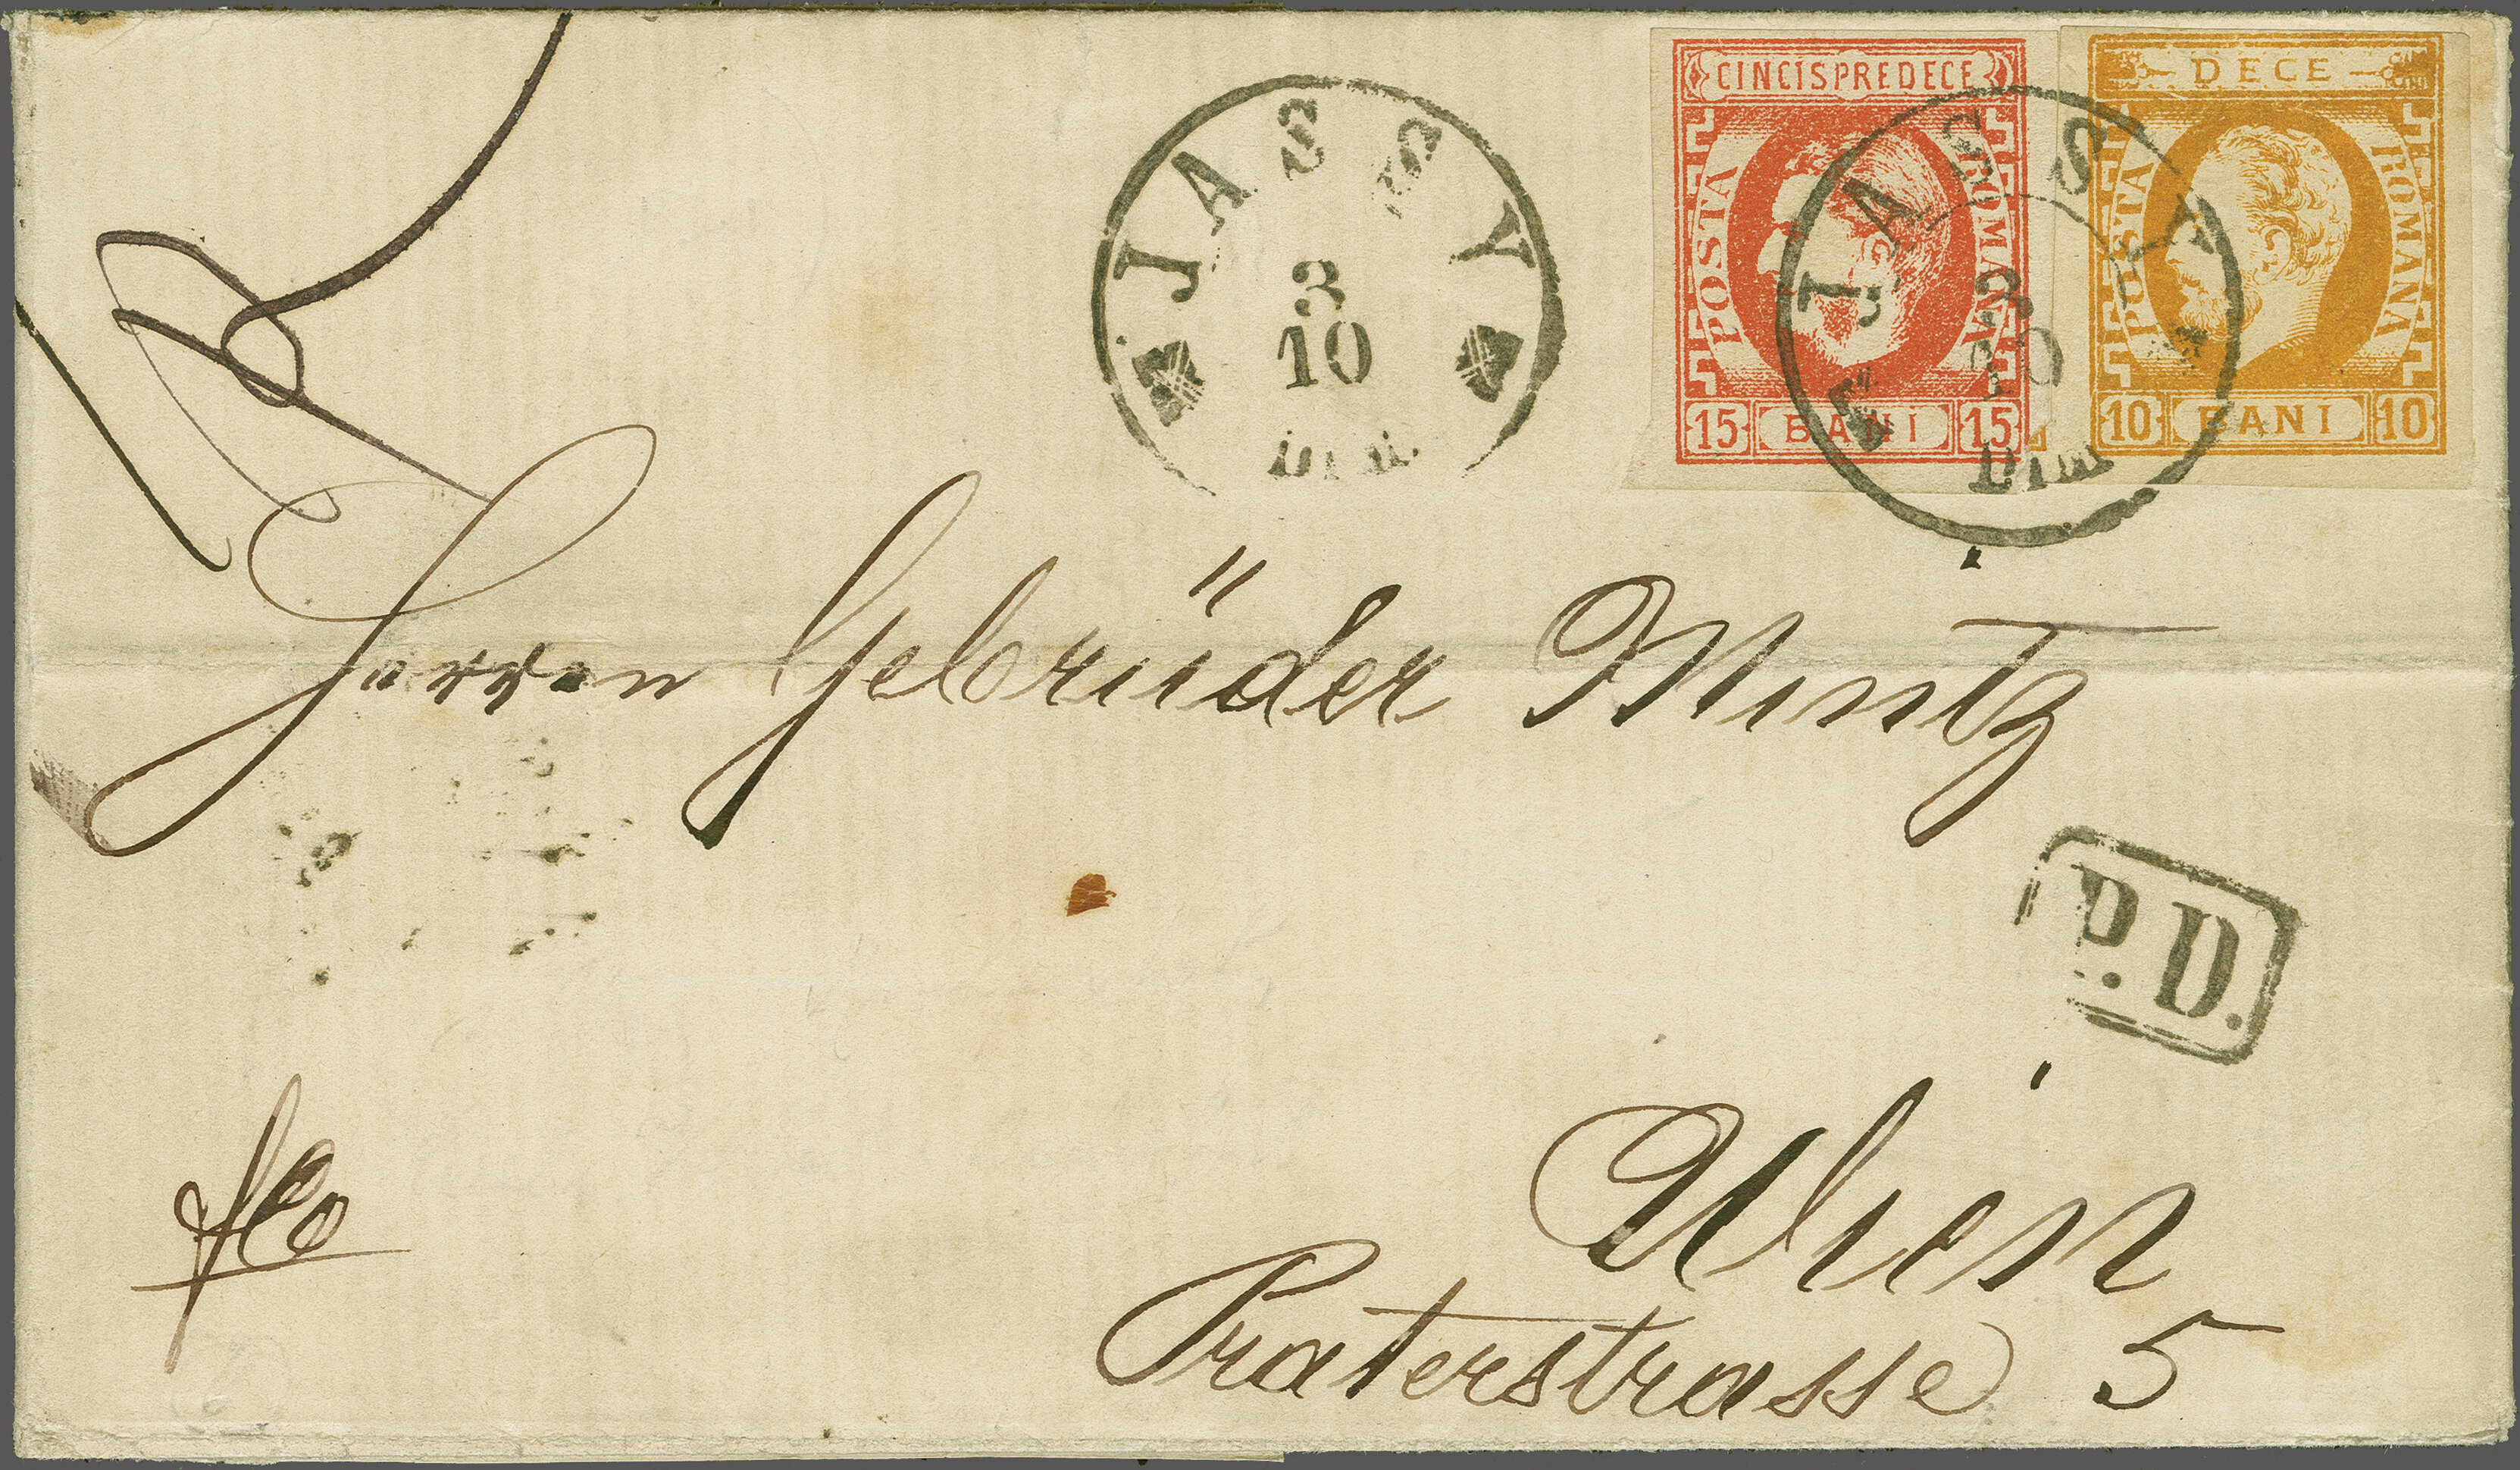 CINCISPREDECE
POSTA
ROMANA
15 BANI 15
DECE
POSTA
ROMANA
10 BANI 10
JASSY
3
10
JASSY
3
10
DIM
Herren Gebrüder Mintz
P.D.
fco
Wien
Praterstrasse 5